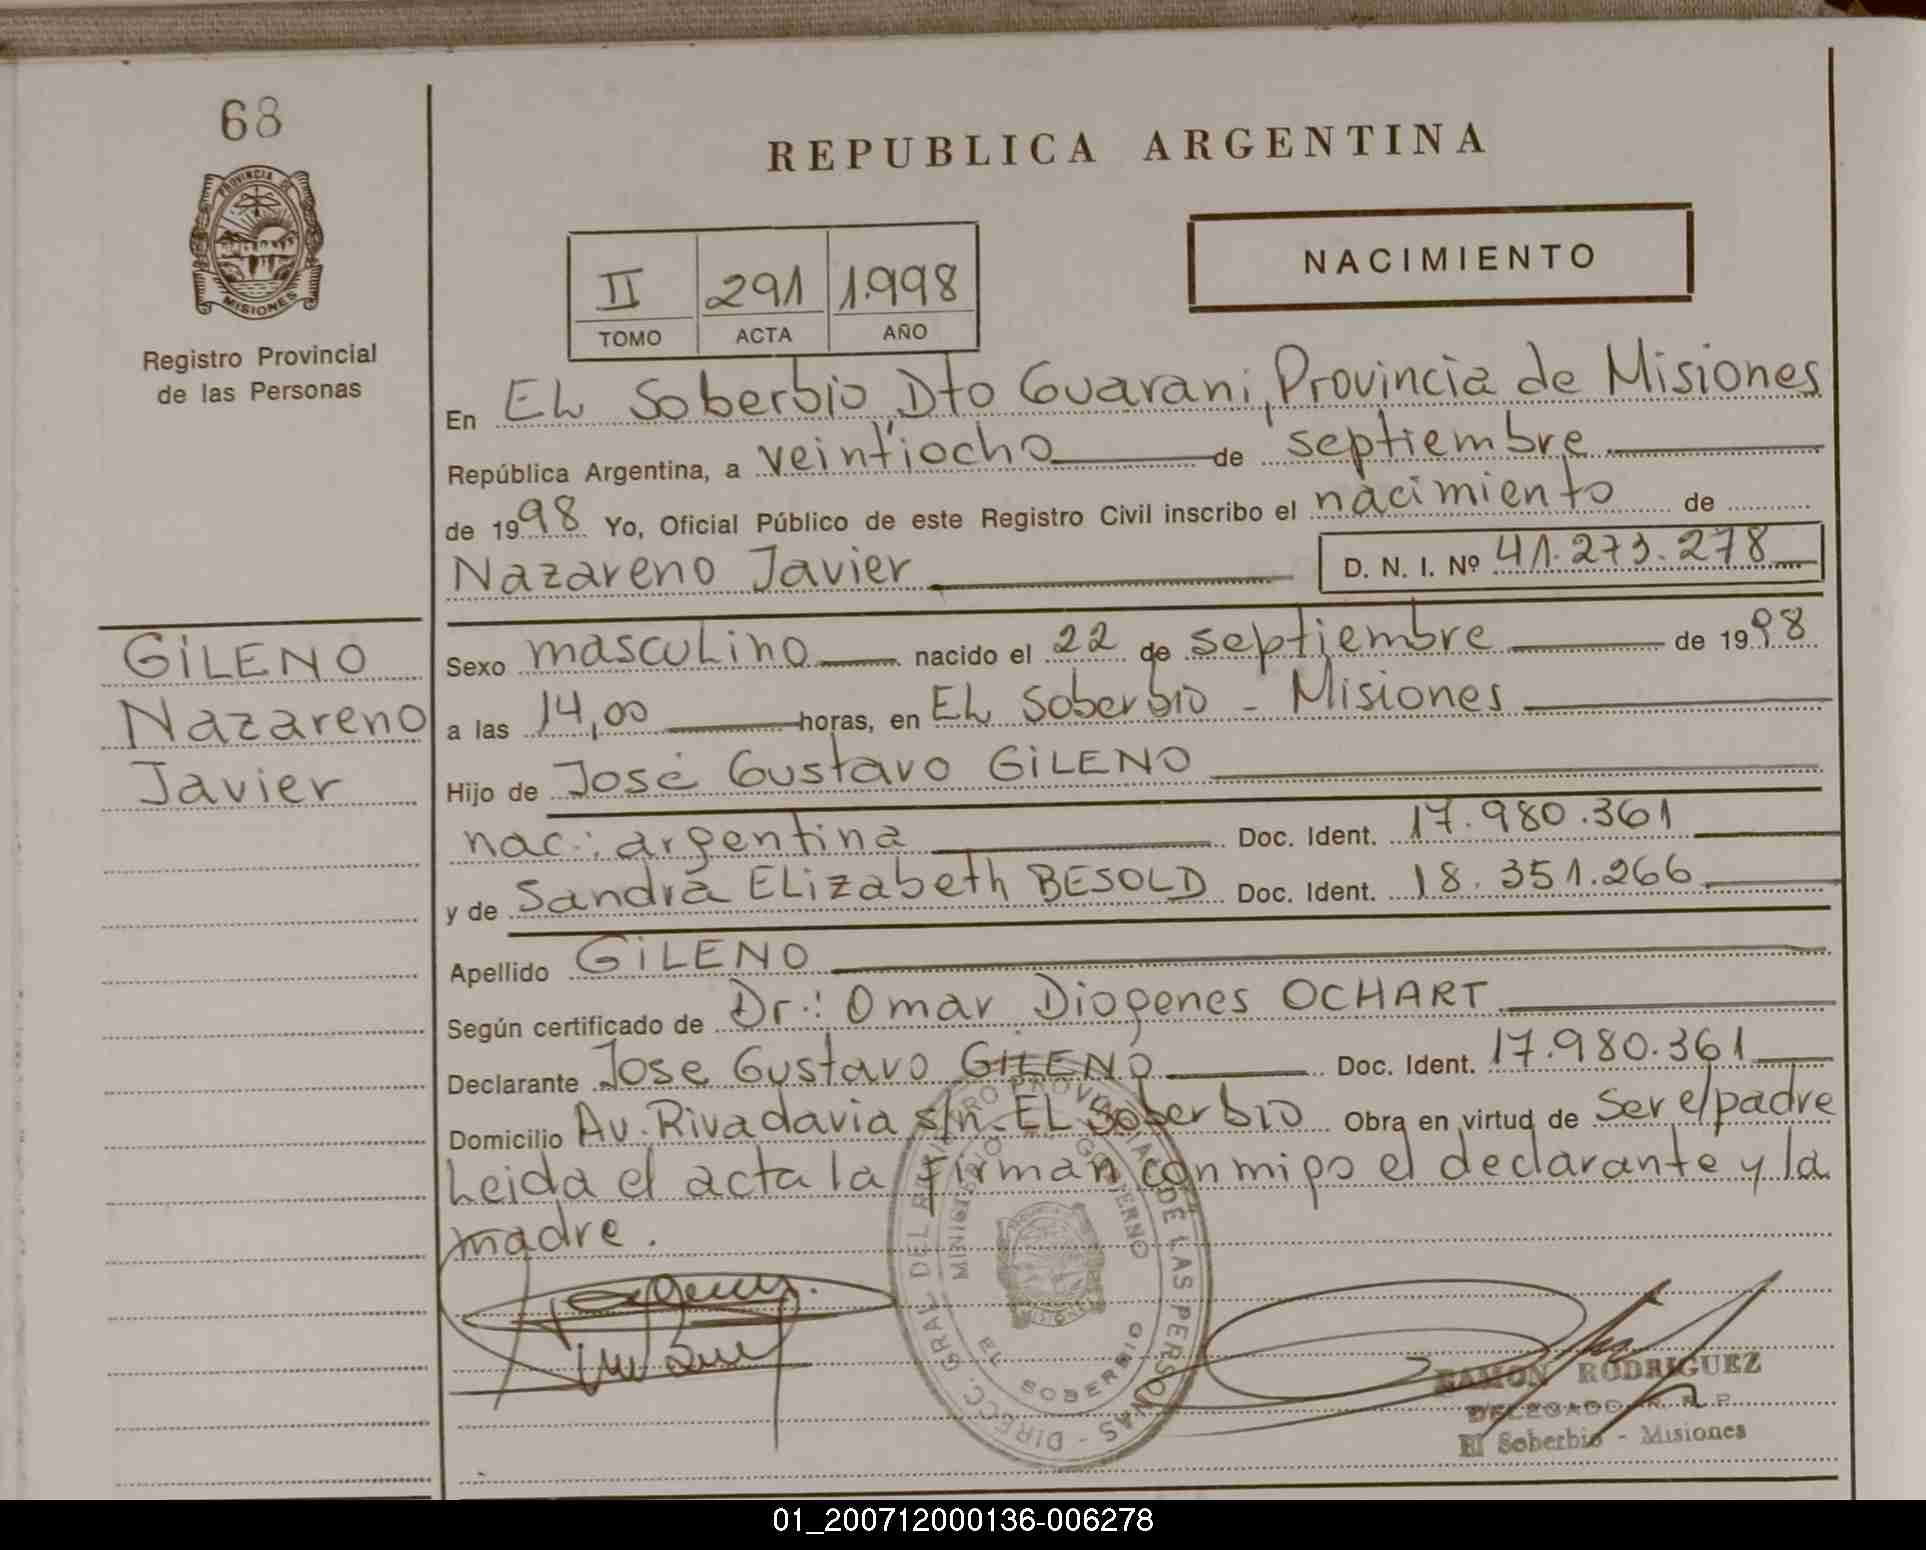 68
PROVINCIA DE
MISIONES
Registro Provincial
de las Personas
REPUBLICA ARGENTINA
II 291 1.998
TOMO ACTA AÑO
NACIMIENTO
En EL Soberbio Dto Guarani, Provincia de Misiones
República Argentina, a veintiocho de septiembre
de 1998 Yo, Oficial Público de este Registro Civil inscribo el nacimiento de
Nazareno Javier D. N. I. Nº 41.273.278
GILENO
Nazareno
Javier
Sexo masculino nacido el 22 de septiembre de 1998
a las 14,00 horas, en EL Soberbio - Misiones
Hijo de José Gustavo GILENO
nac.: argentina Doc. Ident. 17.980.361
y de Sandra ELizabeth BESOLD Doc. Ident. 18.351.266
Apellido GILENO
Según certificado de Dr.: Omar Diogenes OCHART
Declarante Jose Gustavo GILENO Doc. Ident. 17.980.361
Domicilio Av. Rivadavia s/n. EL Soberbio Obra en virtud de ser el padre
Leida el acta la firman conmigo el declarante y la
madre.
DIRECC. GRAL. DEL REGISTRO PROVINCIAL DE LAS PERSONAS
MINISTERIO GOBIERNO
MISIONES
EL SOBERBIO
RAMON RODRIGUEZ
DELEGADO R. P.
El Soberbio - Misiones
01_200712000136-006278